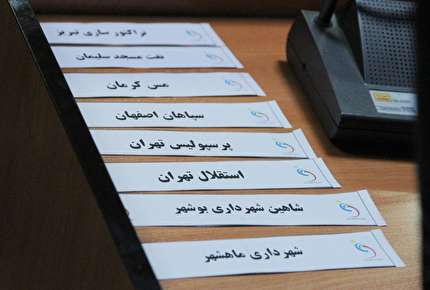 تراکتور سازی تبریز
نفت مسجد سلیمان
مس کرمان
سپاهان اصفهان
پرسپولیس تهران
استقلال تهران
شاهین شهرداری بوشهر
شهرداری ماهشهر